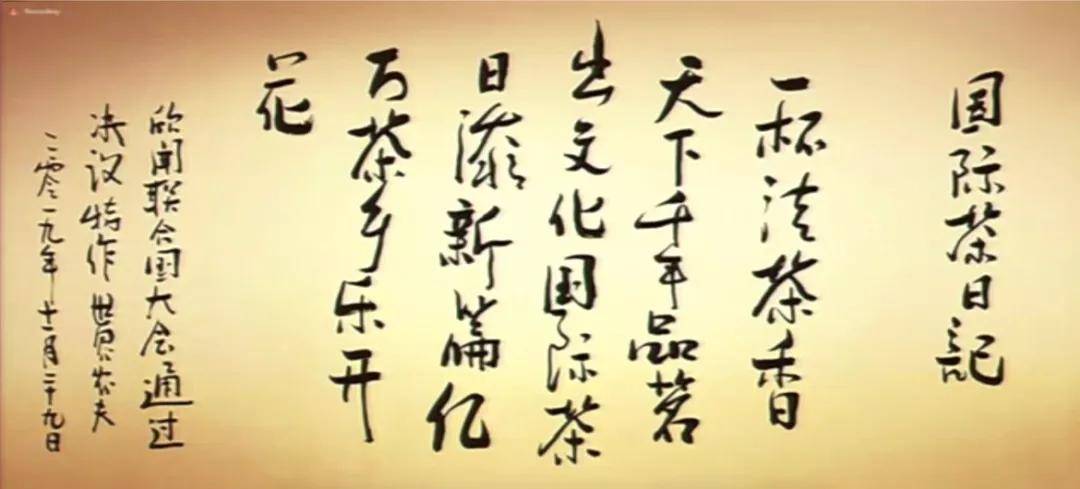 国际茶日記
一杯清茶香
天下千年品茗
出文化国际茶
日添新篇亿
万茶乡乐开
花
欣闻联合国大会通过
决议特作 世界农夫
二零一九年十一月二十九日